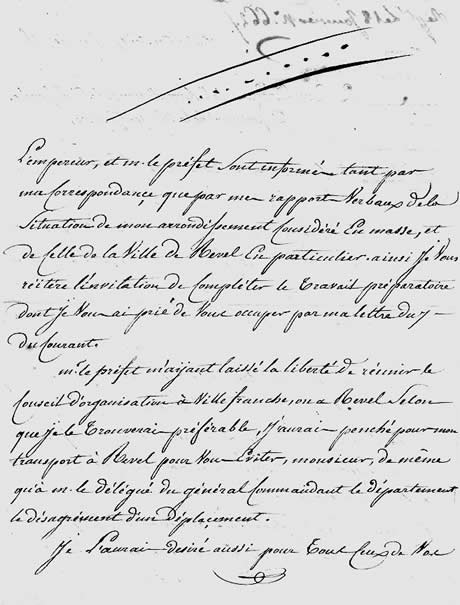 L'empereur, et m. le préfet sont informé tant par
ma Correspondance, que par mes rapport Verbaux de la
Situation de mon arrondissement Considéré En masse, et
de Celle de la Ville de Revel En particulier. ainsi Je Vous
réitère l'invitation de Compléter le travail préparatoire
dont Je Vous ai prié de Vous occuper par ma lettre du 7
du Courant.
m. le préfet m'ayant laissé la liberté de réunir le
Conseil d'organisation à Ville franche, ou a Revel Selon
que Je le trouverai préférable, J'aurai penché pour mon
transport à Revel pour Vous Eviter, monsieur, de même
qu'à m. le délégué du général Commandant le département
le désagrément d'un déplacement.
Je l'aurai desiré aussi pour tout Ceux de Vos